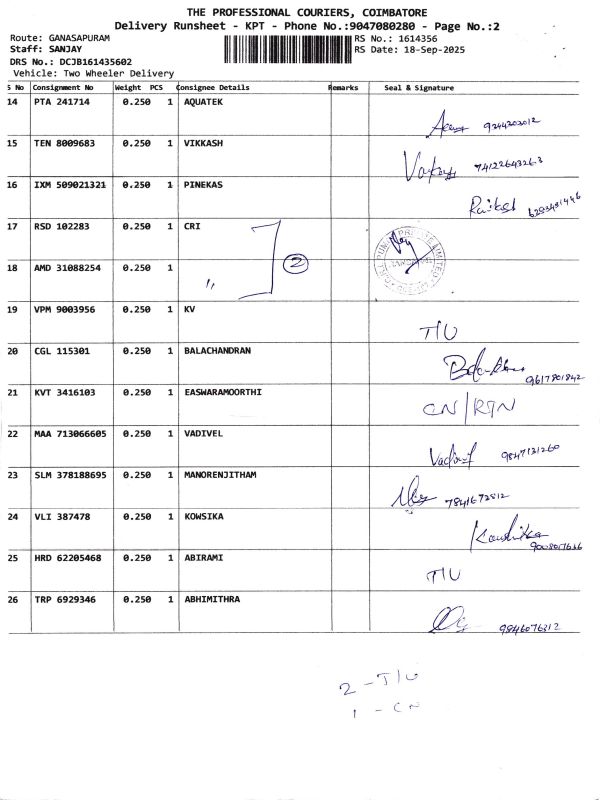 THE PROFESSIONAL COURIERS, COIMBATORE
Delivery Runsheet - KPT - Phone No.:9047080280 - Page No.:2
Route: GANASAPURAM RS No.: 1614356
Staff: SANJAY RS Date: 18-Sep-2025
DRS No.: DCJB161435602
Vehicle: Two Wheeler Delivery
S No Consignment No Weight PCS Consignee Details Remarks Seal & Signature
14 PTA 241714 0.250 1 AQUATEK
9244303012
15 TEN 8009683 0.250 1 VIKKASH
74122643263
16 IXM 509021321 0.250 1 PINEKAS
17 RSD 102283 0.250 1 CRI
2
18 AMD 31088254 0.250 1 "
19 VPM 9003956 0.250 1 KV
T/U
20 CGL 115301 0.250 1 BALACHANDRAN
9617801842
21 KVT 3416103 0.250 1 EASWARAMOORTHI
CN/RTN
22 MAA 713066605 0.250 1 VADIVEL
Vadivel 9847131260
23 SLM 378188695 0.250 1 MANORENJITHAM
7841672812
24 VLI 387478 0.250 1 KOWSIKA
Kowshika
25 HRD 62205468 0.250 1 ABIRAMI
T/U
26 TRP 6929346 0.250 1 ABHIMITHRA
9846076312
2 - T/U
1 - CN